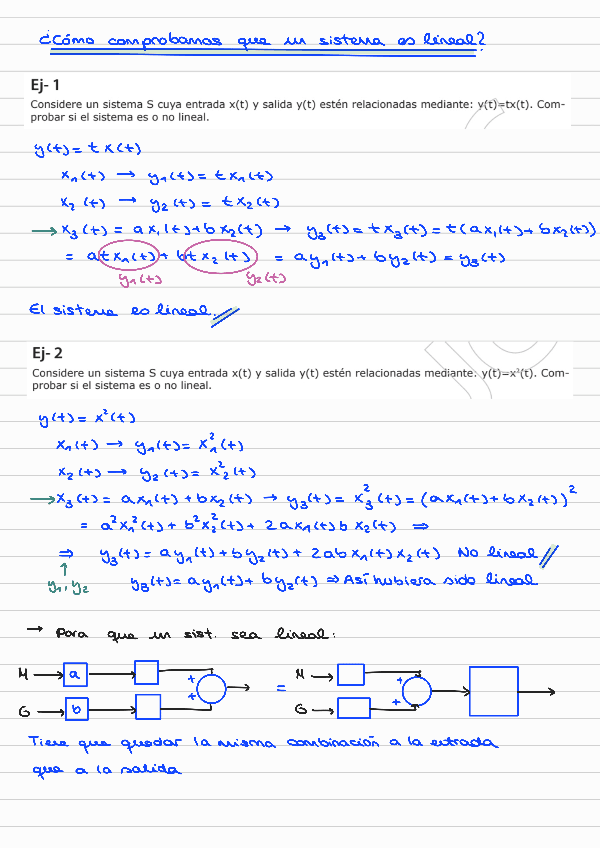 ¿Cómo comprobamos que un sistema es lineal?
Ej- 1
Considere un sistema S cuya entrada x(t) y salida y(t) estén relacionadas mediante: y(t)=tx(t). Com-
probar si el sistema es o no lineal.
y(t) = t x(t)
x₁(t) → y₁(t) = t x₁(t)
x₂(t) → y₂(t) = t x₂(t)
→ x₃(t) = a x₁(t) + b x₂(t) → y₃(t) = t x₃(t) = t(a x₁(t) + b x₂(t))
= a t x₁(t) + b t x₂(t) = a y₁(t) + b y₂(t) = y₃(t)
y₁(t) y₂(t)
El sistema es lineal.
Ej- 2
Considere un sistema S cuya entrada x(t) y salida y(t) estén relacionadas mediante: y(t)=x²(t). Com-
probar si el sistema es o no lineal.
y(t) = x²(t)
x₁(t) → y₁(t) = x₁²(t)
x₂(t) → y₂(t) = x₂²(t)
→ x₃(t) = a x₁(t) + b x₂(t) → y₃(t) = x₃²(t) = (a x₁(t) + b x₂(t))²
= a² x₁²(t) + b² x₂²(t) + 2 a x₁(t) b x₂(t) ⇒
⇒ y₃(t) = a y₁(t) + b y₂(t) + 2ab x₁(t) x₂(t) No lineal
y₁, y₂ y₃(t) = a y₁(t) + b y₂(t) ⇒ Así hubiera sido lineal
→ Para que un sist. sea lineal:
M → a + = M → +
G → b + G → +
Tiene que quedar la misma combinación a la entrada
que a la salida